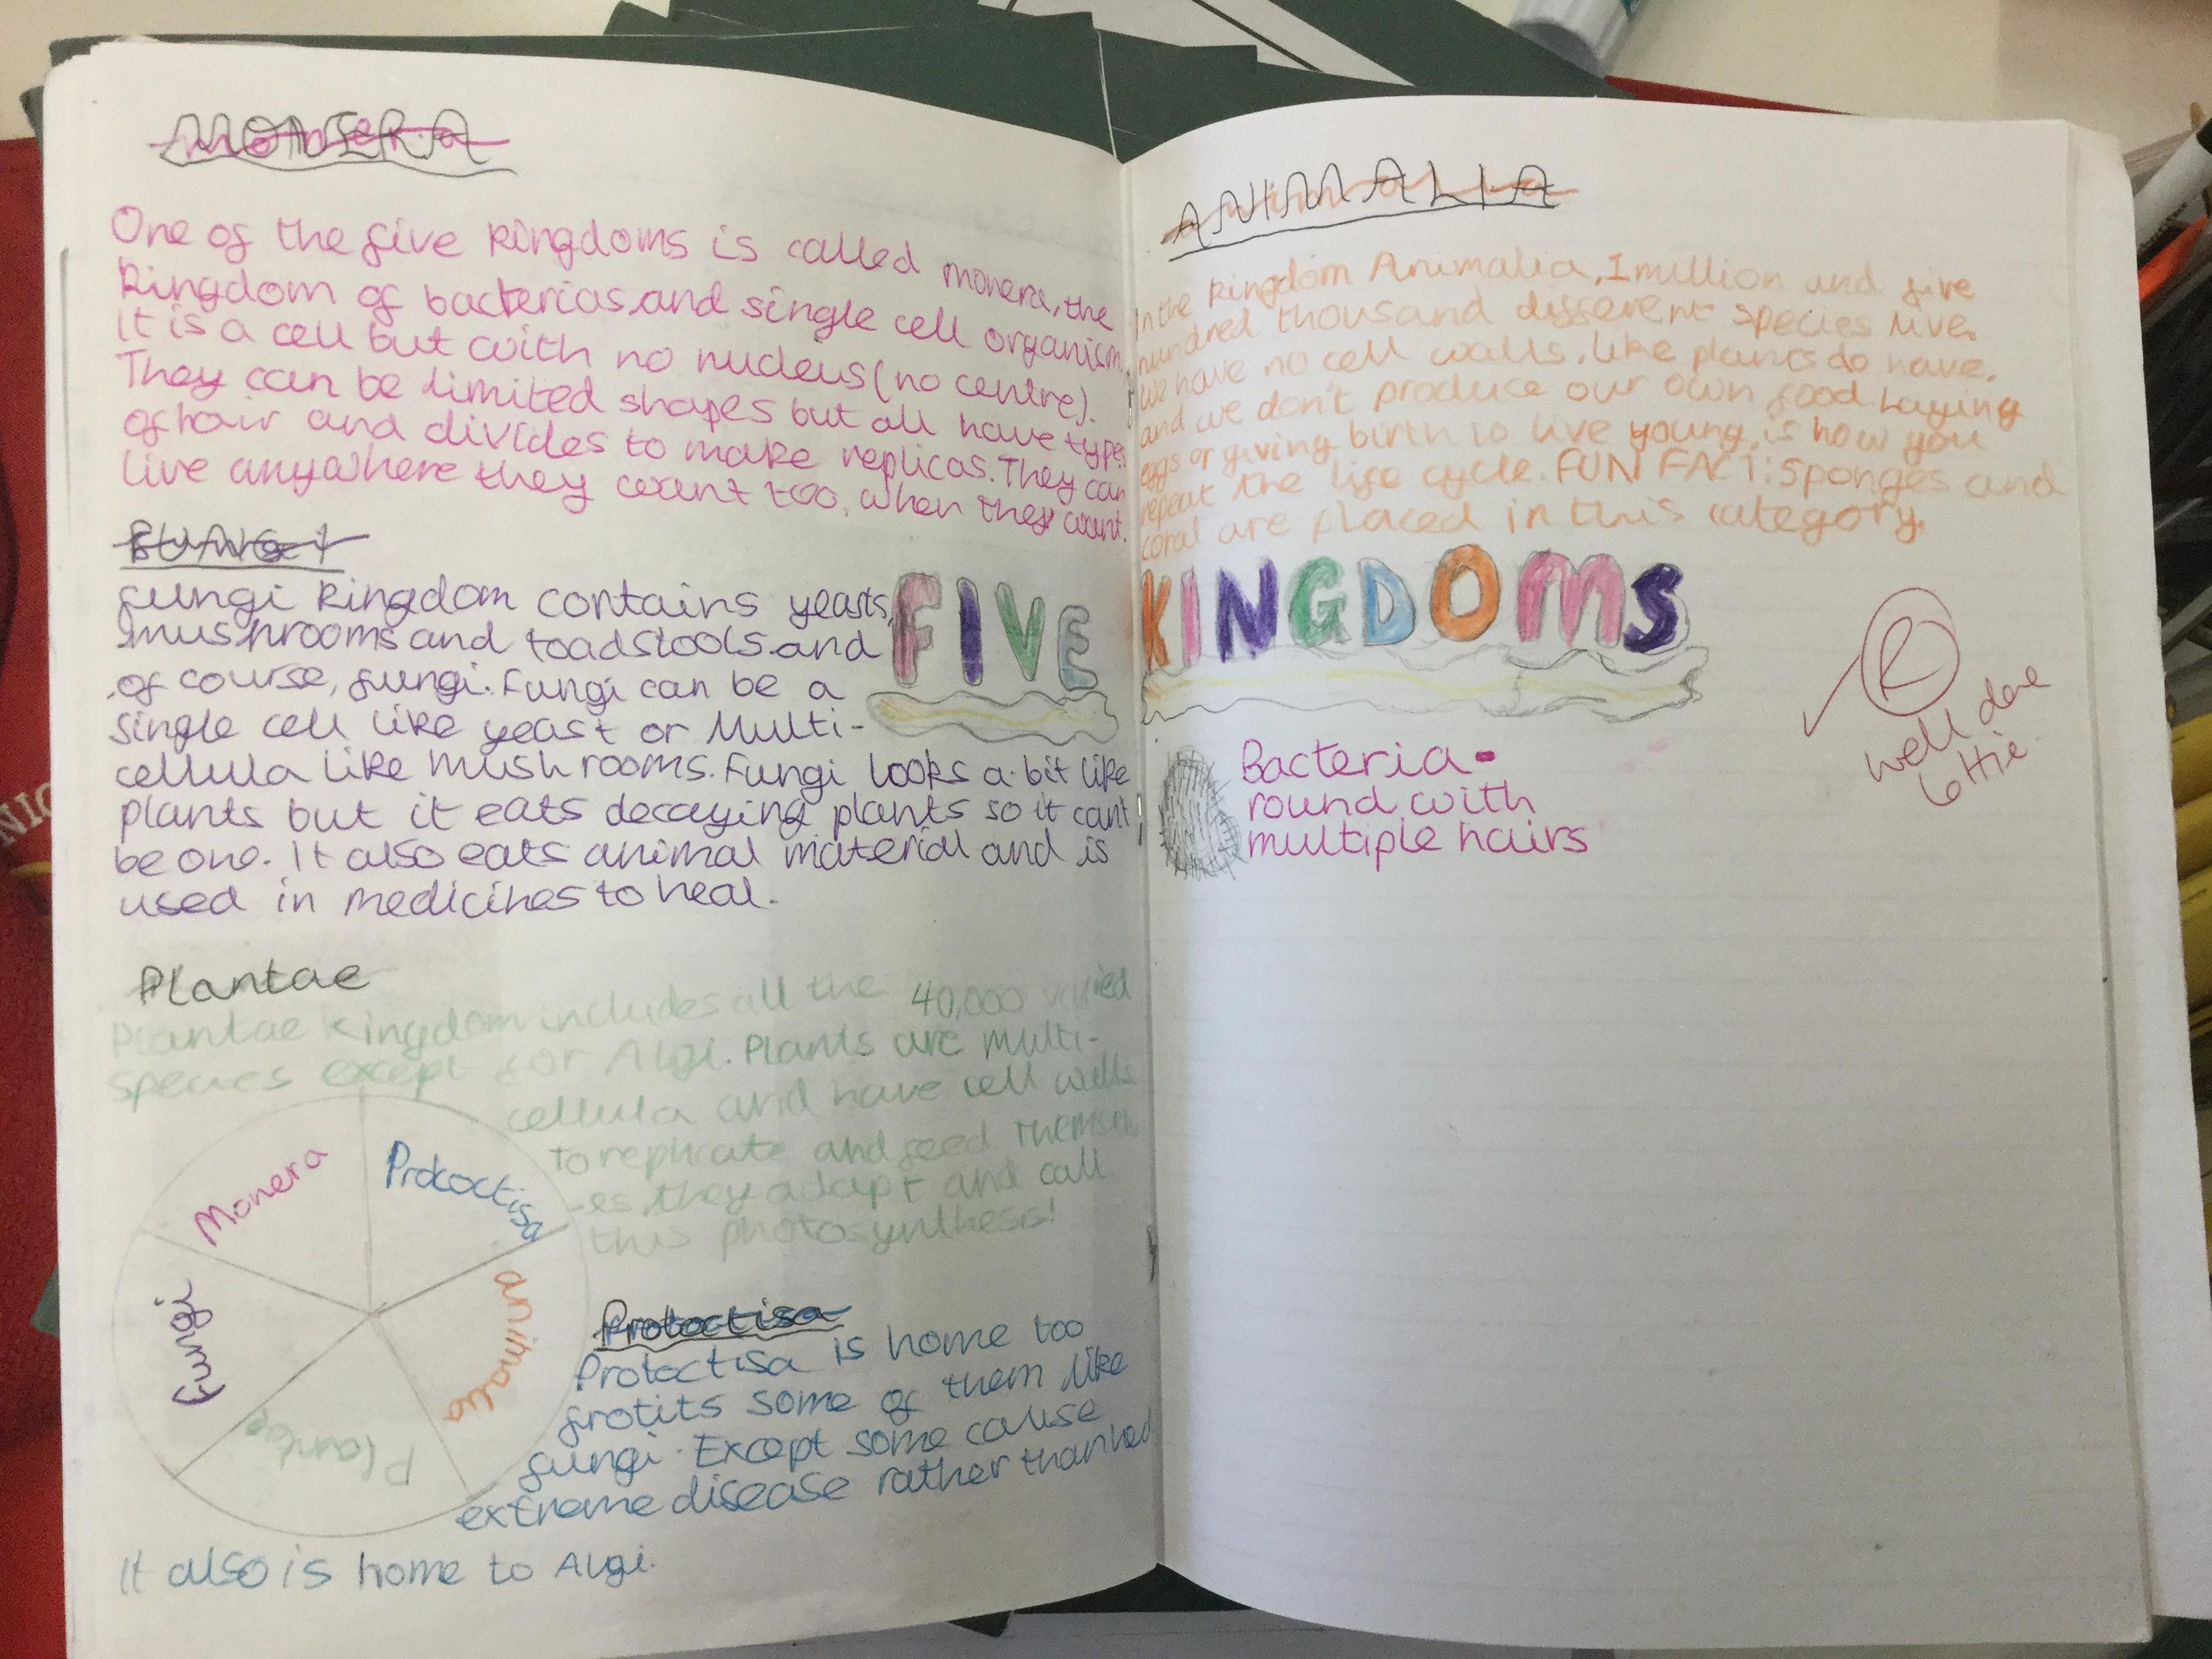 MONERA
One of the five kingdoms is called monera, the
kingdom of bacterias and single cell organism.
It is a cell but with no nucleus (no centre).
They can be limited shapes but all have types
of hair and divides to make replicas. They can
live anywhere they want too, when they want.
FUNGI
fungi kingdom contains yeasts,
mushrooms and toadstools and
of course, fungi. Fungi can be a
single cell like yeast or Multi-
cellula like mushrooms. Fungi looks a bit like
plants but it eats decaying plants so it cant
be one. It also eats animal material and is
used in medicines to heal.
Plantae
Plantae kingdom includes all the 40,000 varied
species except for Algi. Plants are multi-
cellula and have cell walls
to replicate and feed themselv
-es, they adapt and call
this photosynthesis!
Monera
Protoctisa
animalia
Plantae
fungi
Protoctisa
Protoctisa is home too
protits some of them like
fungi. Except some cause
extreme disease rather than
It also is home to Algi.
FIVE KINGDOMS
ANIMALIA
In the kingdom Animalia, 1 million and five
hundred thousand different species live.
We have no cell walls, like plants do have.
and we don't produce our own food Laying
eggs or giving birth to live young, is how you
repeat the life cycle. FUN FACT: Sponges and
coral are placed in this category.
R
well done
Lottie
Bacteria-
round with
multiple hairs